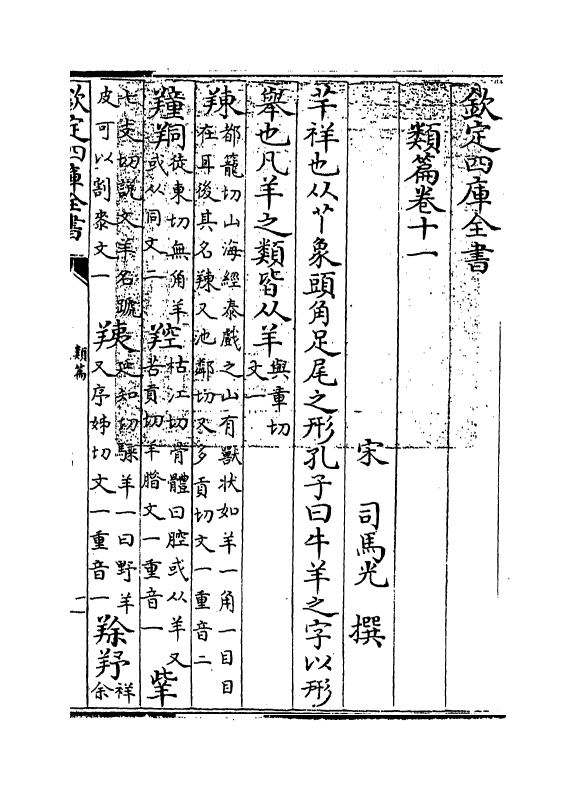 欽定四庫全書
類篇卷十一
宋 司馬光 撰
芊祥也从𦫳象頭角足尾之形孔子曰牛羊之字以形
舉也凡羊之類皆从羊與章切文一
𦍻都籠切山海經泰戲之山有獸状如羊一角一目目在耳後其名𦍻又池鄰切又多貢切文一重音二
羵羫徒東切無角羊或从同文二 羫枯江切骨體曰腔或从羊又苦貢切羊腊文一重音一 羜
七支切說文羊名蹏皮可以割桼文一 羠延知切騬羊一曰野羊又序姊切文一重音一 䍱𦍕祥余
欽定四庫全書
類篇
二